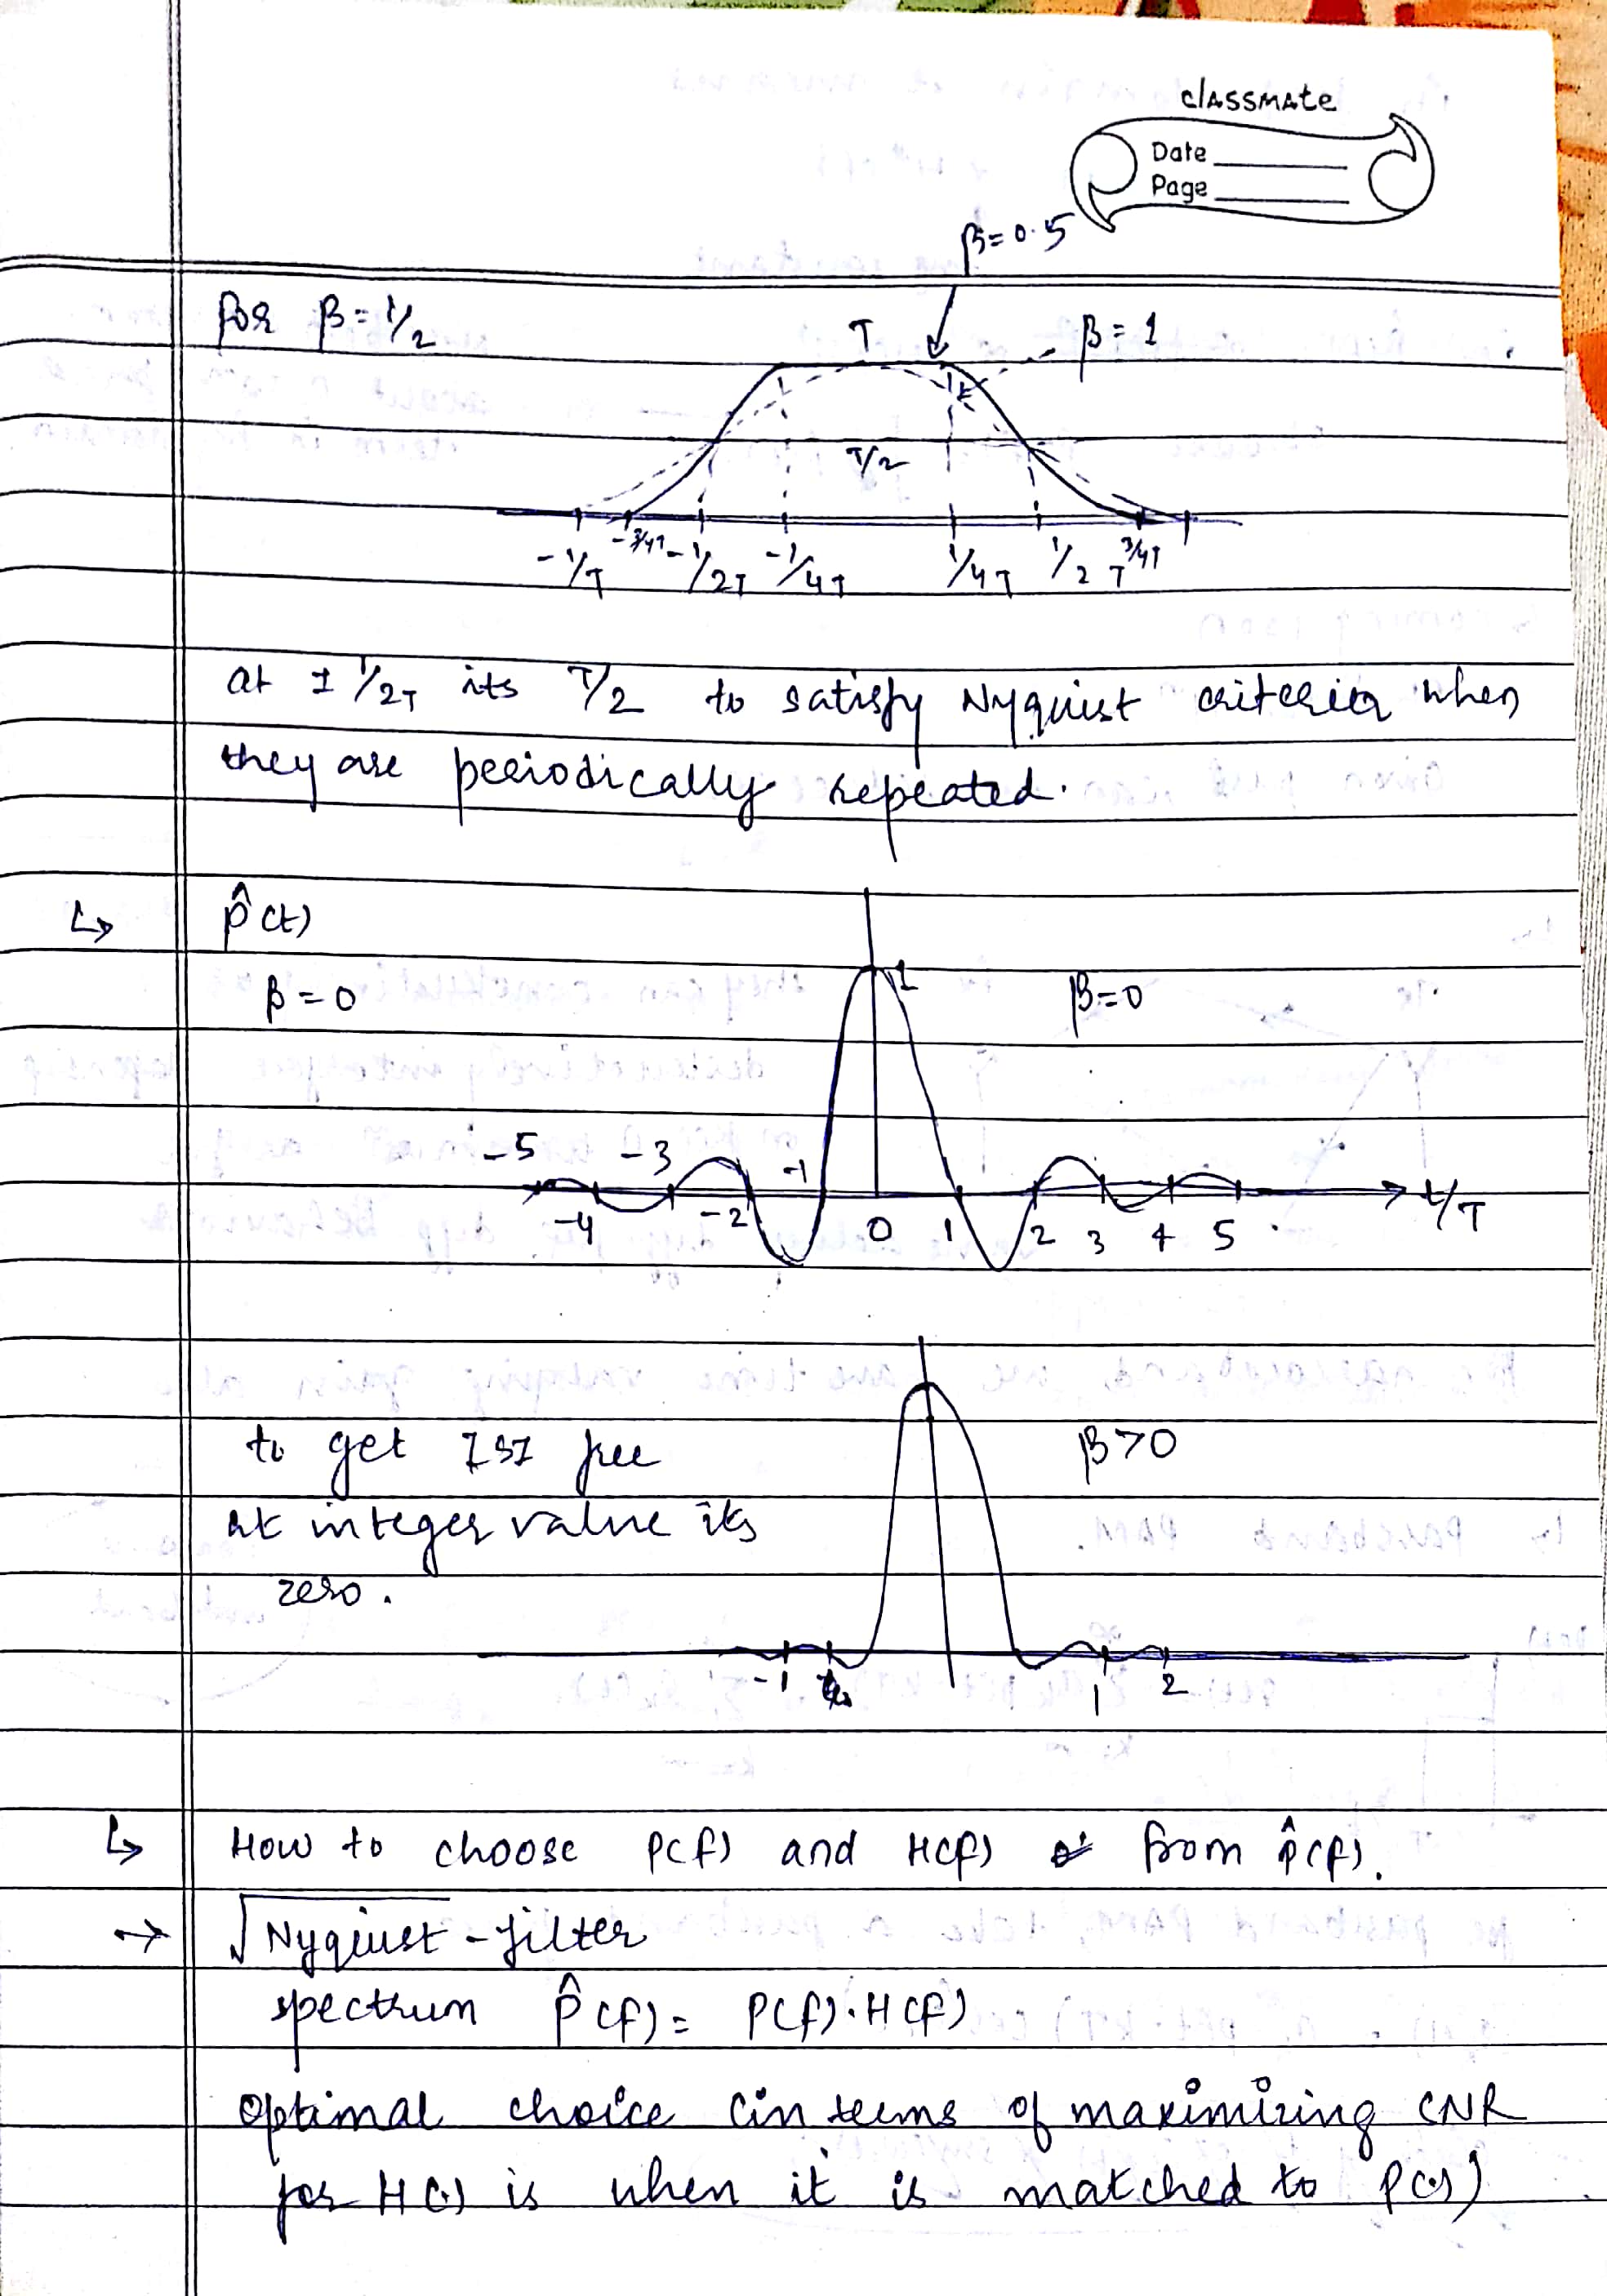 classmate
Date
Page
β=0.5
for β=1/2
T
β=1
T/2
-1/T -3/4T -1/2T -1/4T 1/4T 1/2T 3/4T
at ± 1/2T its T/2 to satisfy Nyquist criteria when
they are periodically repeated.
↳ p̂(t)
β=0
1
β=0
-5 -3 -1
-4 -2 0 1 2 3 4 5
t/T
to get ISI free
β>0
at integer value its
zero.
-1 1 2
↳ How to choose P(f) and H(f) from p̂(f).
→ √Nyquist-filter
spectrum P̂(f)= P(f).H(f)
optimal choice (in terms of maximizing SNR
for H(.) is when it is matched to P(.))